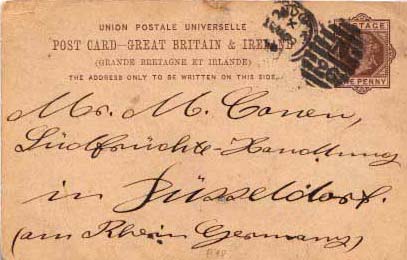 UNION POSTALE UNIVERSELLE
POST CARD-GREAT BRITAIN & IRELAND
(GRANDE BRETAGNE ET IRLANDE)
THE ADDRESS ONLY TO BE WRITTEN ON THIS SIDE.
POSTAGE
ONE PENNY
Mr. M. Conen,
Südfrüchte-Handlung
in Düsseldorf.
(am Rhein Germany)